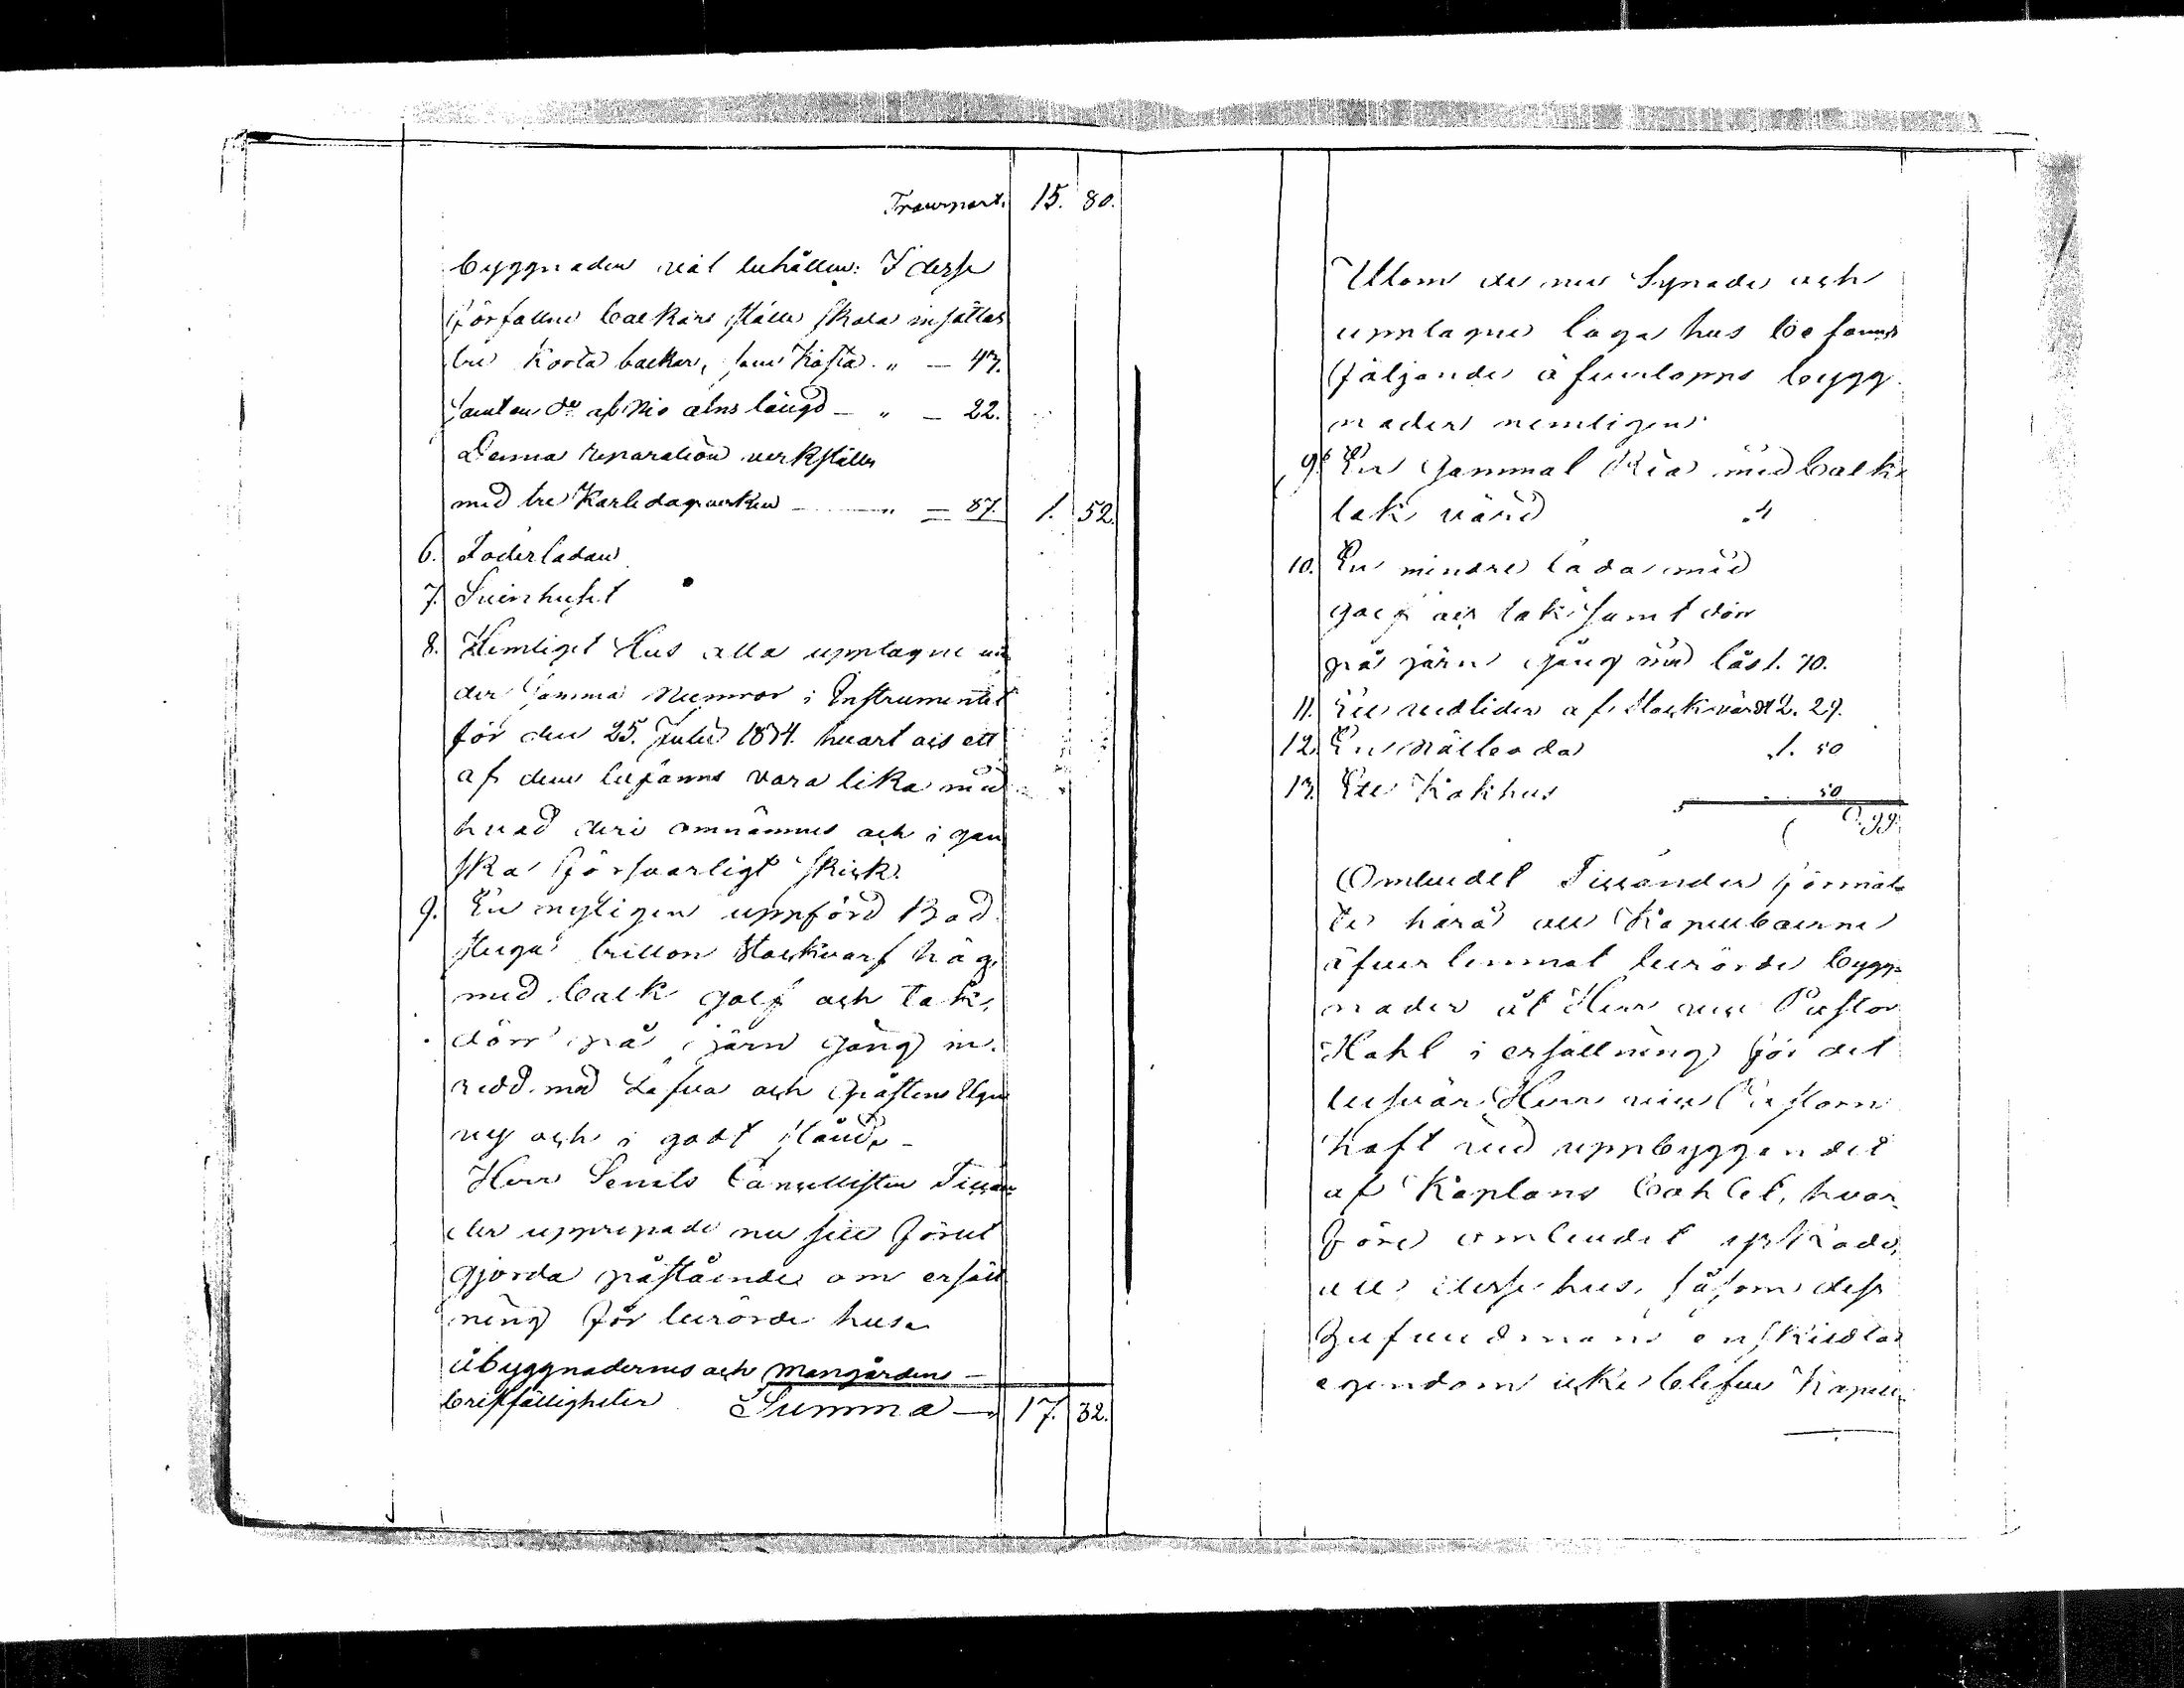 Transport. 15. 80.
byggnaden väl behållen: I desse
förfallne balkars ställe skola insättas
tre korta balkar, som kosta " — 43.
samt en do af nio alns längd — " — 22.
Denna reparation verkställes
med tre Karledagsverken — " — 87. 1. 52.
6. Foderladan
7. Svinhuset
8. Hemliget Hus alla upptagne un
der samma Numror i Instrumentet
för den 25. Julii 1834. hvart ock ett
af dem befanns vara lika med
hvad deri omnämnes och i gan
ska försvarligt skick.
9. En nyligen uppförd Bad
stuga tretton stockvarf hög,
med balk golf och tak,
dörr på järn gång in-
redd med Lafva och ugn
ny och i godt stånd. -
Herr Senats Cancellisten Tissan
der upprepade nu sitt förut
gjorda påstående om ersätt
ning för berörde huse
åbyggnadernes och mangårdens —
bristfälligheter Summa — 17. 32.
Utom de nu Synade och
upptagne laga hus befanns
följande öfverlopps bygg
nader nemligen
9. En Gammal Ria med balk
tak värd 4
10. En mindre lada med
golf och tak samt dörr
på järn gång med lås 1. 70.
11. Ett vedlider af stock värdt 2. 29.
12. En 1. 50
13. Ett Kokhus 50
9.99.
Ombudet Tissander förmäl
te härå att Kapellboerne
öfverlemnat berörde bygg
nader åt Herr vice Pastor
Hahl i ersättning för det
besvär Herr vice Pastorn
haft vid uppbyggandet
af Kaplans bohlet, hvar
före ombudet yrkade,
att desse hus, såsom dess
hufvudmans enskildta
egendom icke blefve Kapell